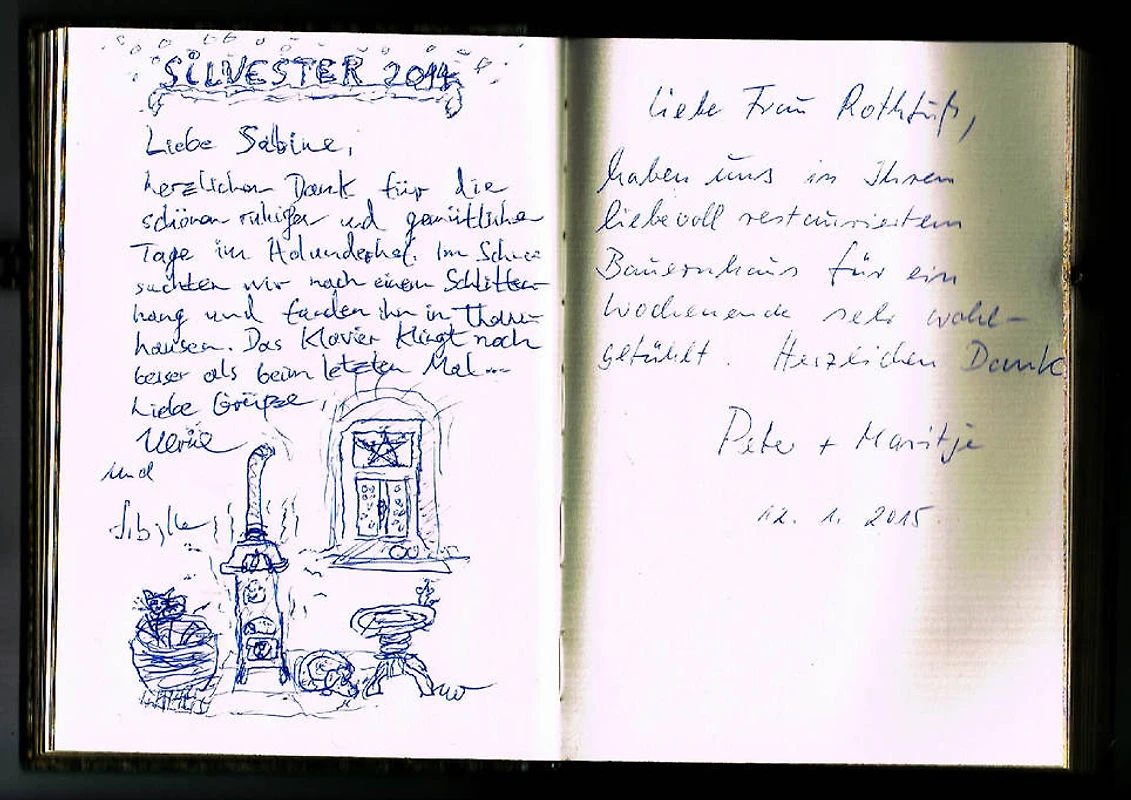 SILVESTER 2014
Liebe Sabine,
herzlichen Dank für die
schönen ruhigen und gemütlichen
Tage im Holunderhof. Im Schnee
suchten wir nach einem Schlitten-
hang und fanden ihn in Thann-
hausen. Das Klavier klingt noch
besser als beim letzten Mal...
Liebe Grüße,
und
Sibylle
Liebe Frau Rothfuß,
haben uns in Ihrem
liebevoll restaurierten
Bauernhaus für ein
Wochenende sehr wohl-
gefühlt. Herzlichen Dank
Peter + Maritje
12. 1. 2015.